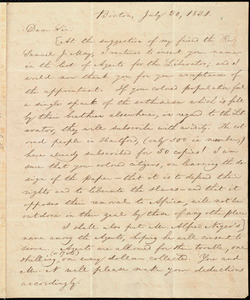 Boston, July 30, 1831.
Dear Sir:
At the suggestion of my friend the Rev.
Samuel J. May, I venture to insert your name
in the list of Agents for the Liberator, and
would now thank you for your acceptance of
the appointment. If your colored population feel
a single spark of the enthusiasm which is felt
by their brethren elsewhere, in regard to the Lib-
erator, they will subscribe with avidity. The col-
ored people in Hartford, (only 500 in number)
have already subscribed for 30 copies! I am
sure that your colored citizens, on learning the de-
sign of the paper—that it is to defend their
rights and to liberate the slaves—and that it
opposes their removal to Africa, will not be
outdone in their zeal by those of any other place.
I shall also put Mr. Alfred Niger's
name among the Agents, hoping he will consent to
serve. Agents are allowed for their trouble, one
shilling on every dollar collected. You and
Mr. N. will please make your deductions
accordingly.